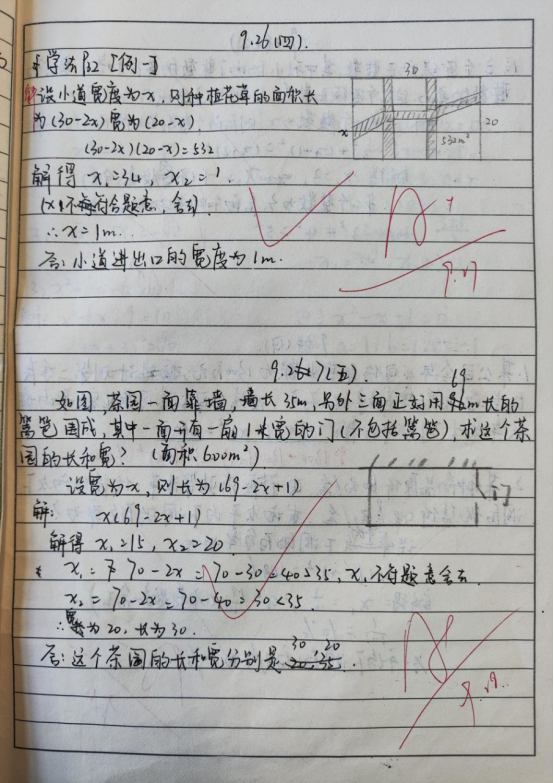 9.26(四).
学法P22 [例一]
30
解设小道宽度为x,则种植花草的面积长
为(30-2x)宽为(20-x).
x
20
532m²
(30-2x)(20-x)=532
解得 x₁=34, x₂=1.
(x₁不符合题意,舍去)
∴x=1m.
A+
答:小道进出口的宽度为1m.
9.27
9.27(五).
69
如图,茶园一面靠墙,墙长35m,另外三面正好用 m长的
篱笆围成,其中一面开有一扇1米宽的门(不包括篱笆),求这个茶
园的长和宽? (面积600m²)
设宽为x,则长为(69-2x+1)
门
解: x(69-2x+1)
解得 x₁=15, x₂=20
x₁= 70-2x=70-30=40>35, x₁不符题意舍去.
x₂=70-2x=70-40=30<35
∴宽为20,长为30.
30 20
答:这个茶园的长和宽分别是20,35.
A